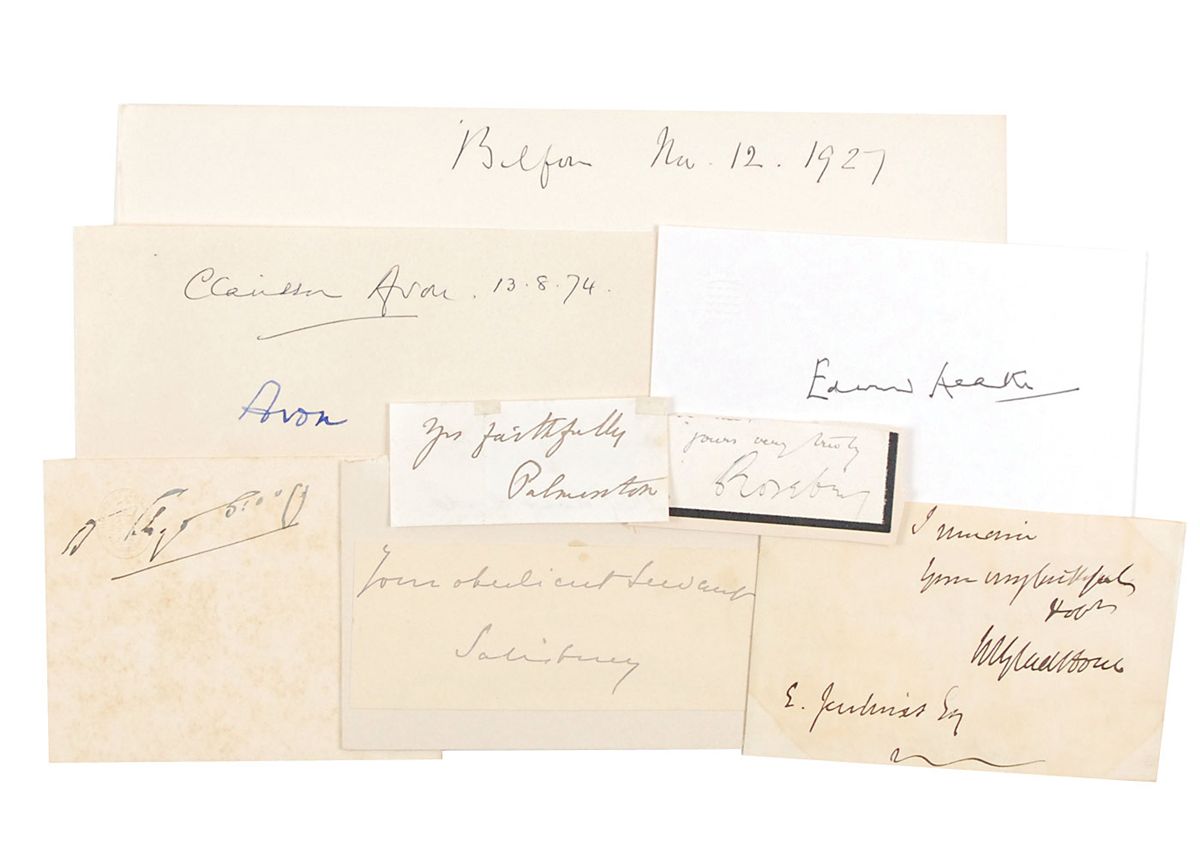 Balfour Nov. 12. 1927
Clarissa Avon. 13.8.74.
Avon
Edward Heath
Yrs faithfully
Palmerston
yours very truly
Rosebery
D Lloyd George
Your obedient Servant
Salisbury
I remain
Your very faithful
WEGladstone
E. Jenkins Esq